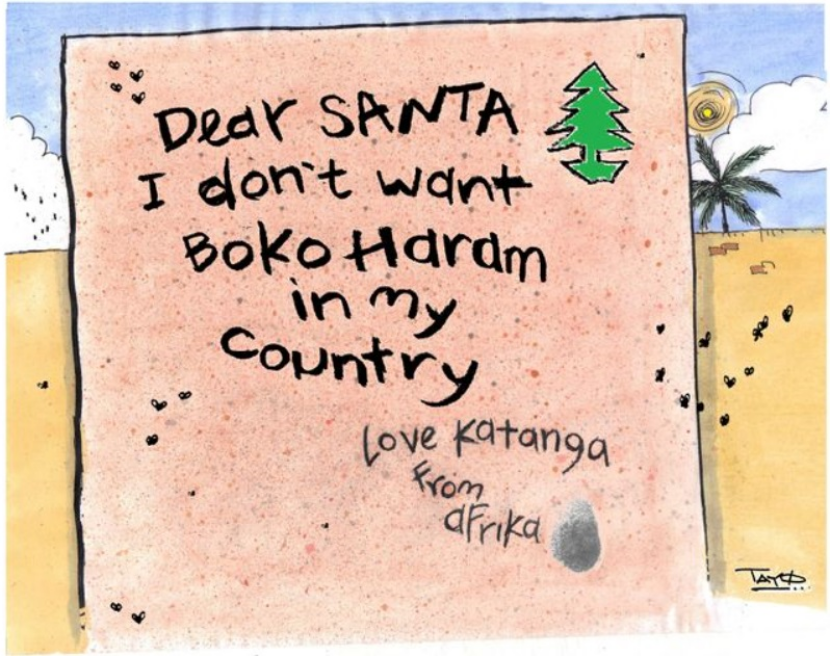 Dear SANTA
I don't want
Boko Haram
in my
country
Love Katanga
from
aFrika
TAYO